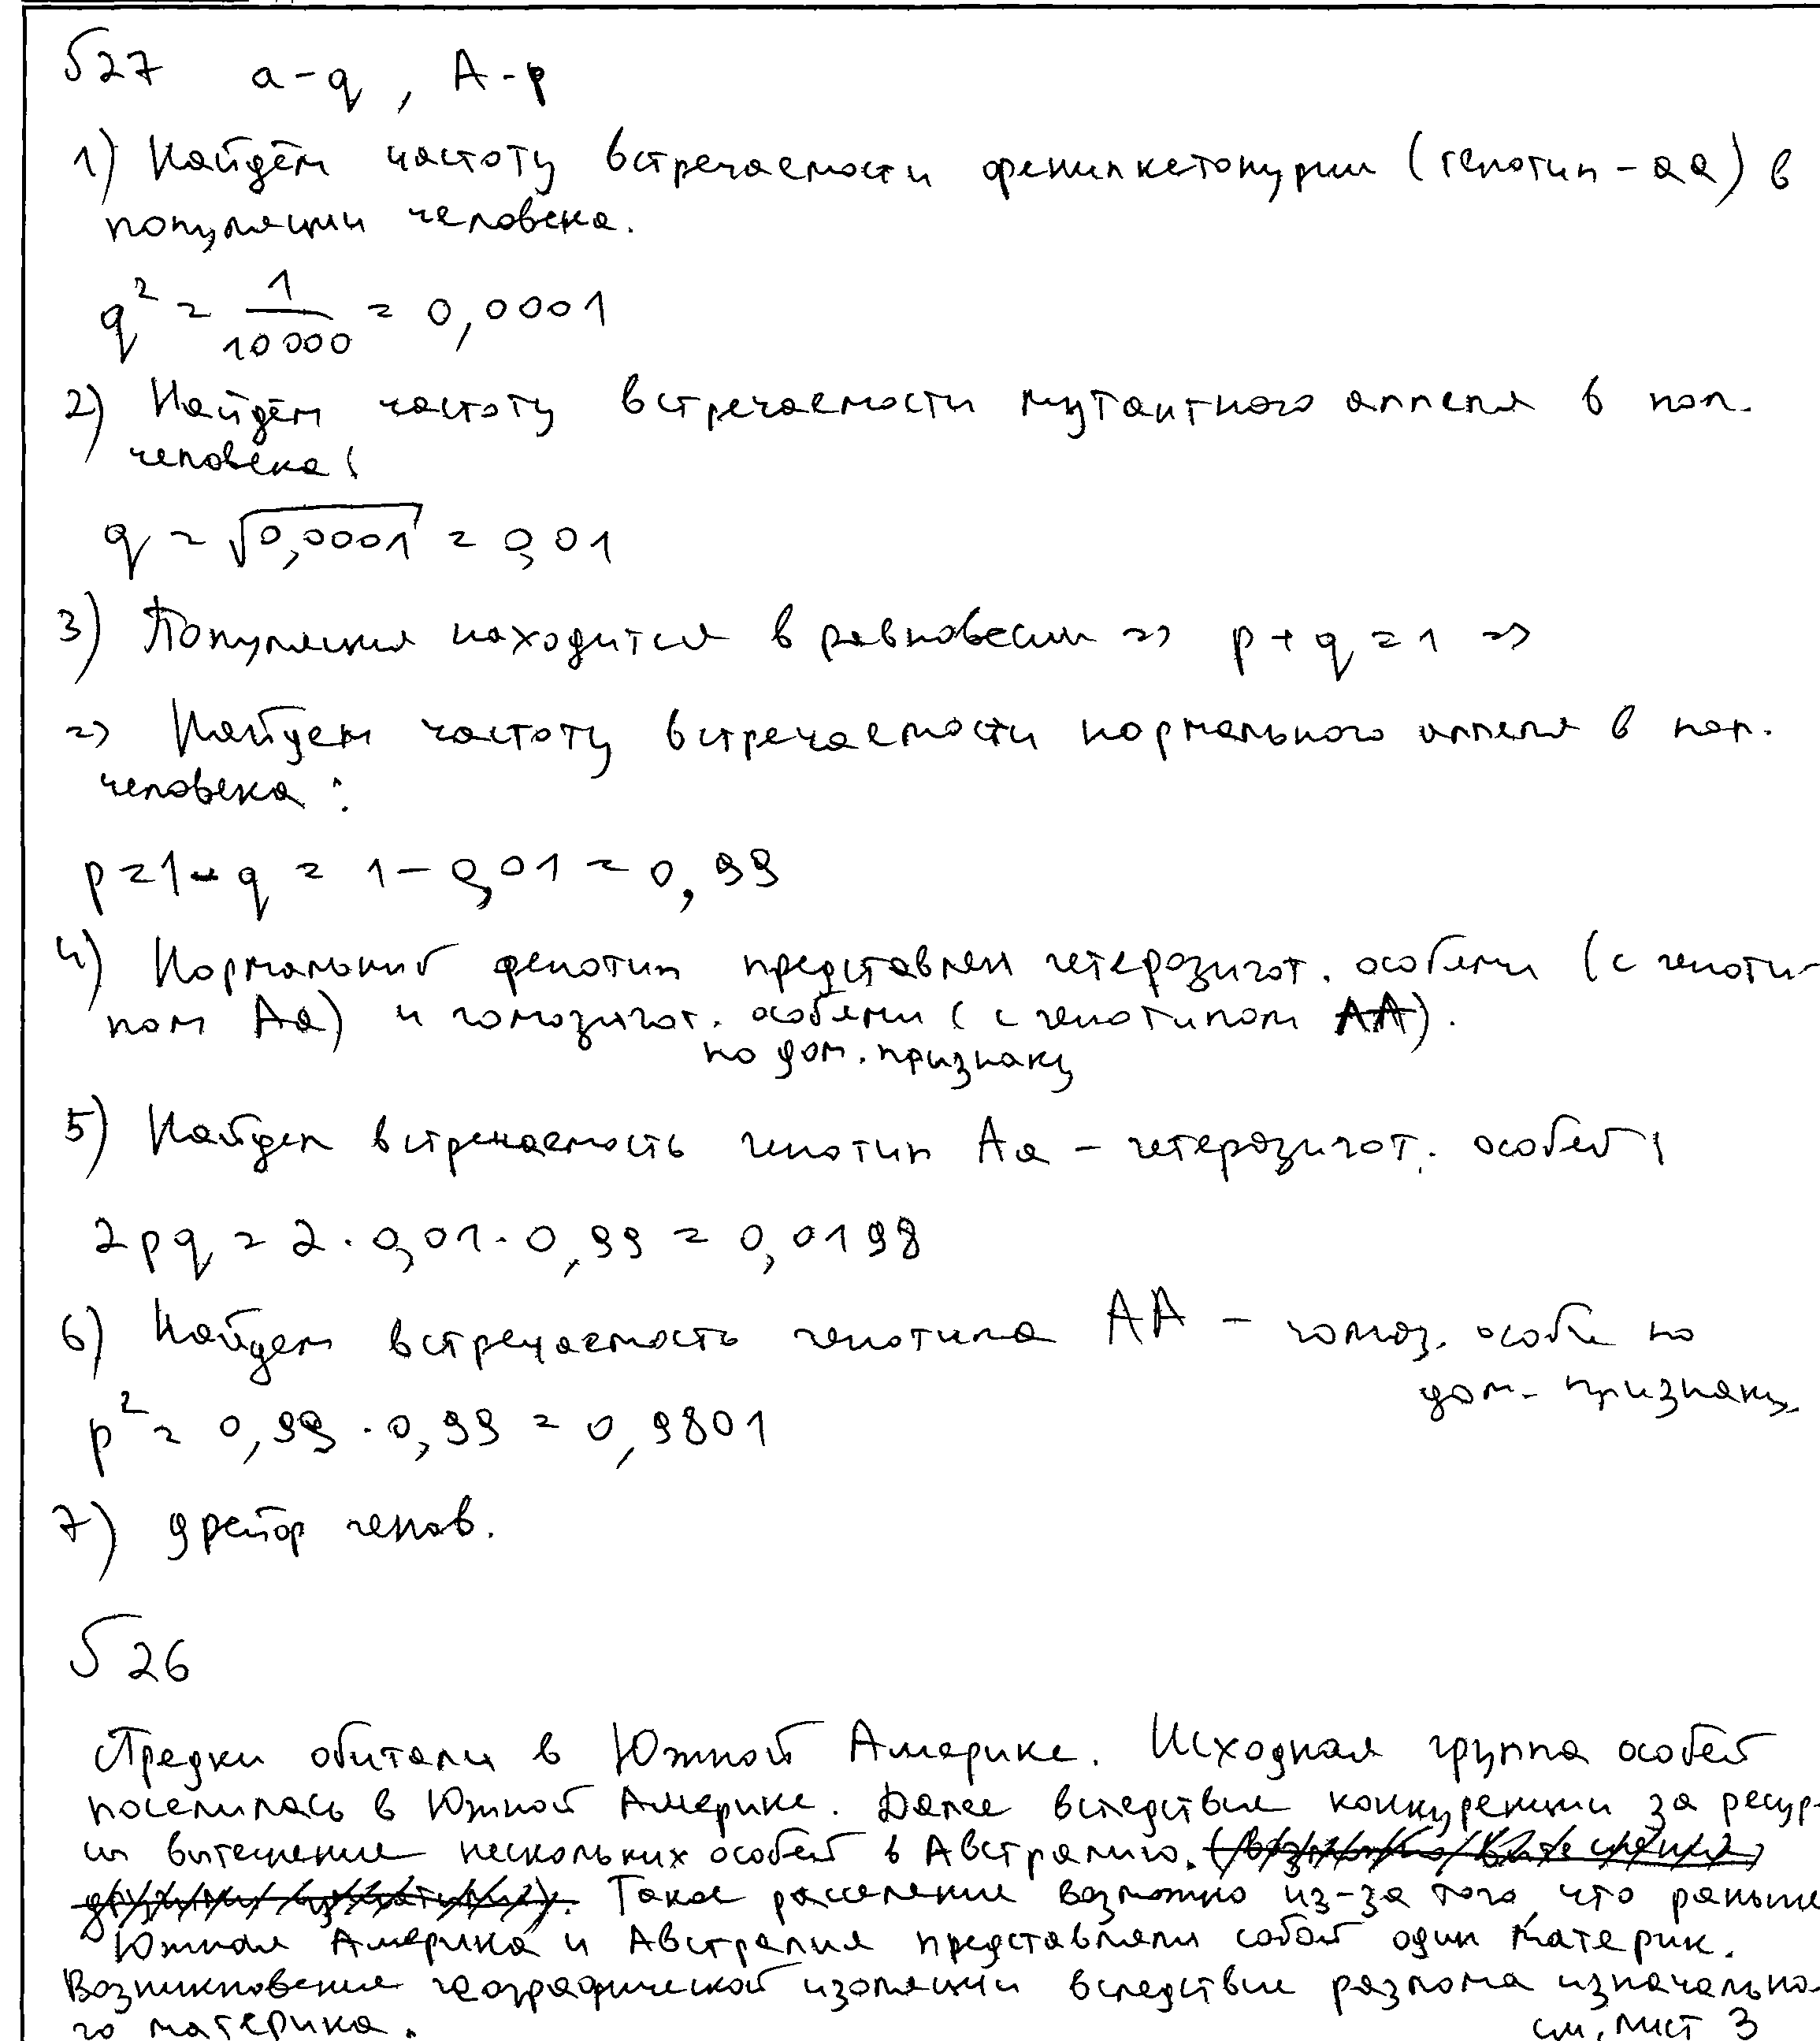 √27 a - q , A - p
1) Найдём частоту встречаемости фенилкетонурии (генотип - аа) в
популяции человека.
q² = 1/10000 = 0,0001
2) Найдём частоту встречаемости мутантного аллеля в поп.
человека:
q = √0,0001 = 0,01
3) Популяция находится в равновесии => p + q = 1 =>
=> Найдем частоту встречаемости нормального аллеля в поп.
человека:
p = 1 - q = 1 - 0,01 = 0,99
4) Нормальный фенотип представлен гетерозигот. особями (с геноти-
пом Аа) и гомозигот. особями (с генотипом АА).
по дом. признаку
5) Найдем встречаемость генотип Аа - гетерозигот. особей:
2pq = 2 · 0,01 · 0,99 = 0,0198
6) Найдем встречаемость генотипа АА - гомоз. особи по
дом. признаку.
p² = 0,99 · 0,99 = 0,9801
7) дрейф генов.
√26
Предки обитали в Южной Америке. Исходная группа особей
поселилась в Южной Америке. Далее вследствие конкуренции за ресур-
сы вытеснение нескольких особей в Австралию.
Такое расселение возможно из-за того, что раньше
Южная Америка и Австралия представляли собой один материк.
Возникновение географической изоляции вследствие разлома изначально-
го материка. см. лист 3